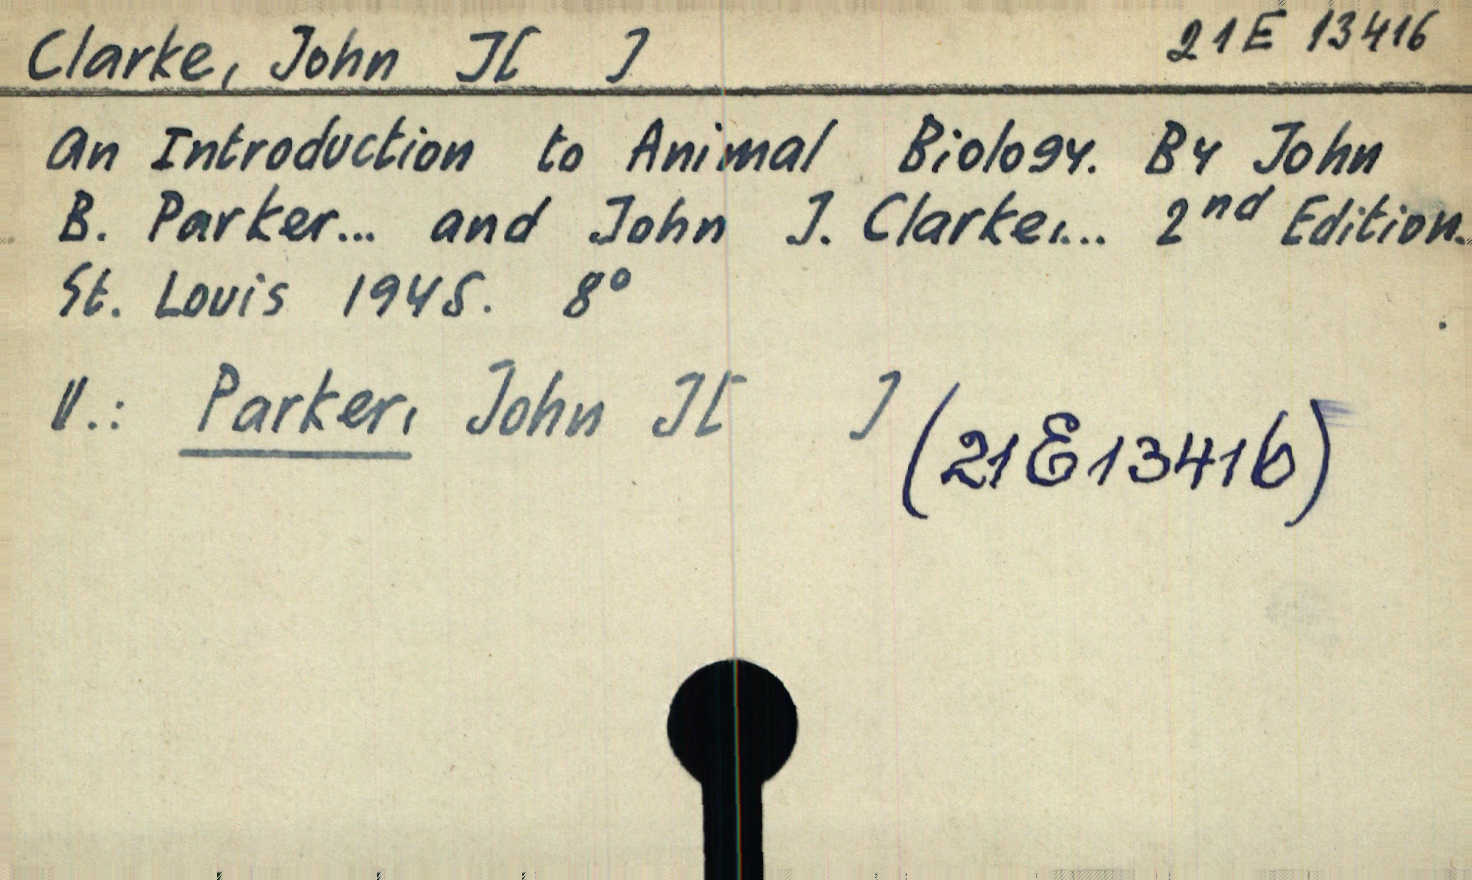 Clarke, John J[ ] 21E 13416
An Introduction to Animal Biology. By John
B. Parker... and John J. Clarke,... 2nd Edition.
St. Louis 1945. 8°
V.: Parker, John J[ ] (21E13416)